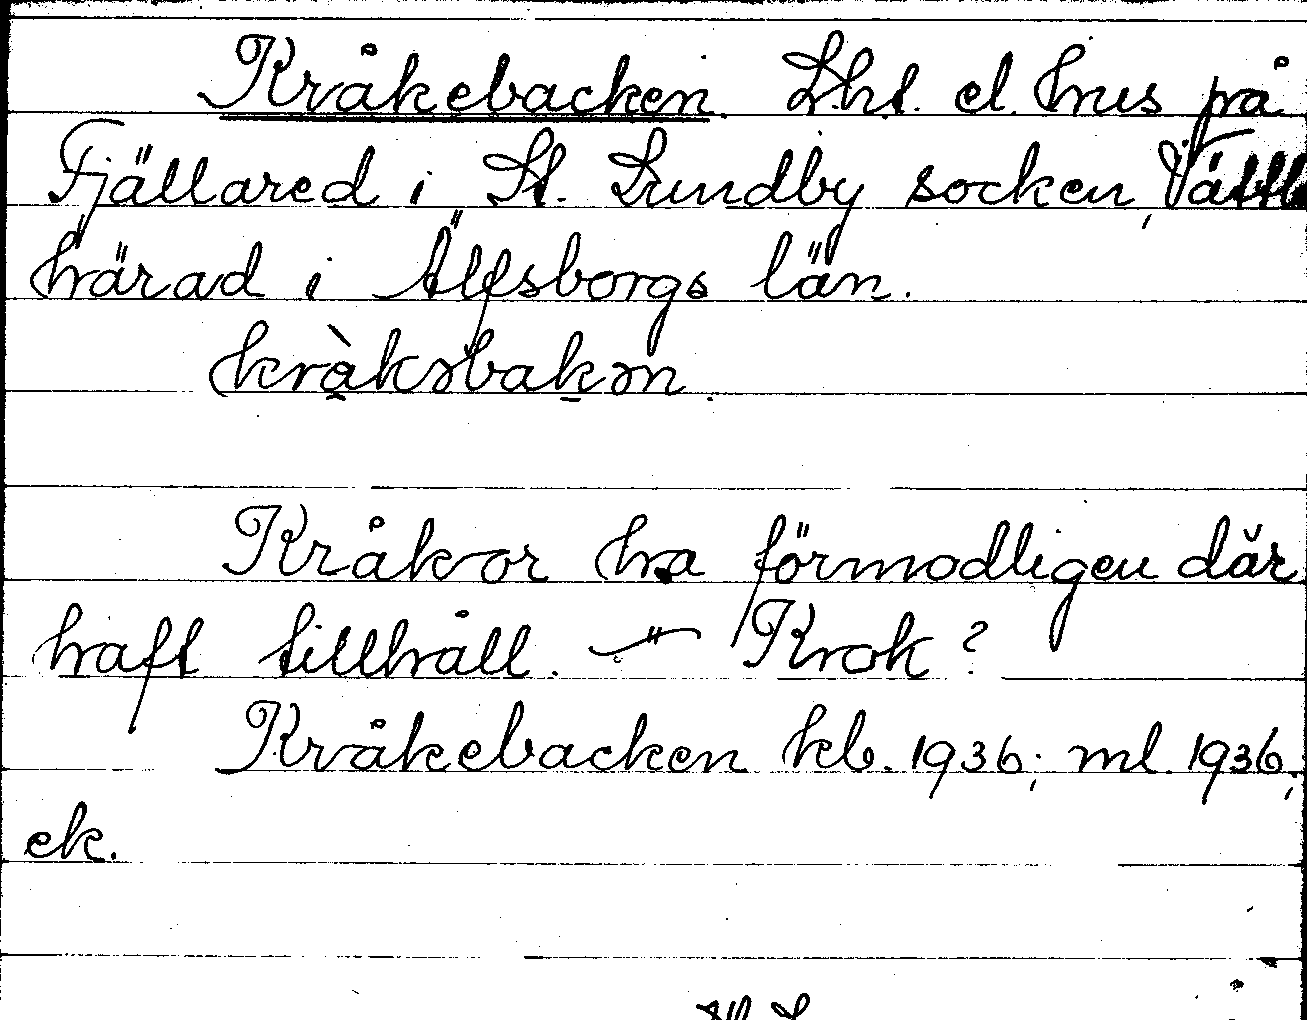 Kråkebacken. Lht. el. hus på
Fjällared i St. Lundby socken, Vättle
härad i Älfsborgs län.
kràkəbakən.
Kråkor ha förmodligen där
haft tillhåll. – Krok?
Kråkebacken kb. 1936; ml. 1936;
ek.